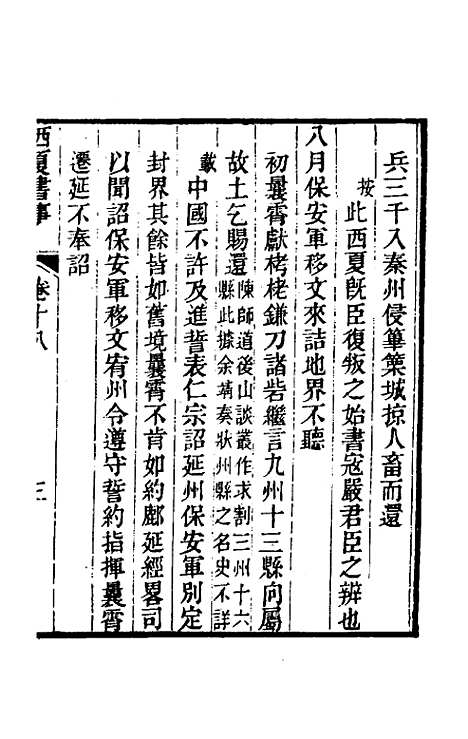 兵三千入秦州侵篳篥城掠人畜而還
按此西夏旣臣復叛之始書寇嚴君臣之辨也
八月保安軍移文來詰地界不聽
初曩霄獻栲栳鎌刀諸砦繼言九州十三縣向屬
故土乞賜還陳師道後山談叢作求割三州十六縣此據余靖奏狀州縣之名史不詳
載中國不許及進誓表仁宗詔延州保安軍別定
封界其餘皆如舊境曩霄不肯如約鄜延經畧司
以聞詔保安軍移文宥州令遵守誓約指揮曩霄
遷延不奉詔
西夏書事
卷十八
三